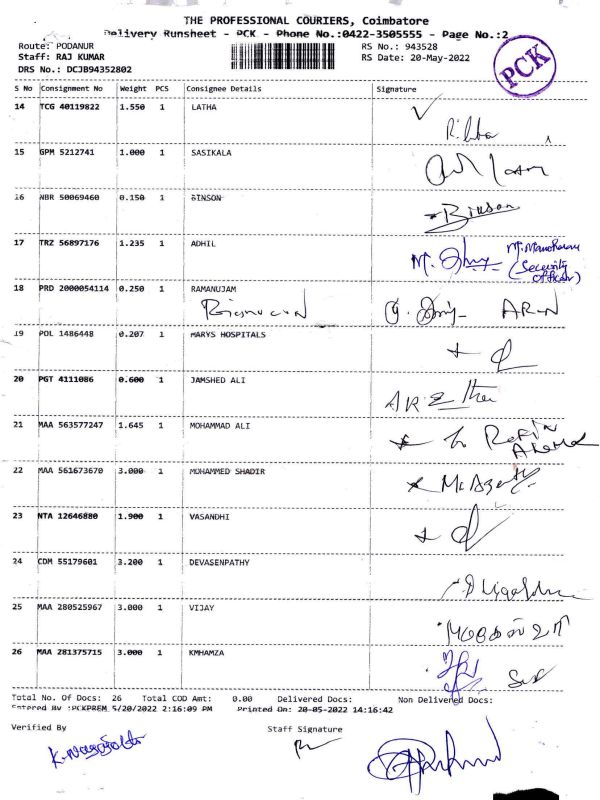 THE PROFESSIONAL COURIERS, Coimbatore
Delivery Runsheet - PCK - Phone No.:0422-3505555 - Page No.:2
Route: PODANUR RS No.: 943528
Staff: RAJ KUMAR RS Date: 20-May-2022
DRS No.: DCJB94352802
PCK
S No Consignment No Weight PCS Consignee Details Signature
14 TCG 40119822 1.550 1 LATHA
15 GPM 5212741 1.000 1 SASIKALA
16 NBR 50069460 0.150 1 BINSON Binson
17 TRZ 56897176 1.235 1 ADHIL M. (Security officer)
18 PRD 2000054114 0.250 1 RAMANUJAM ARUN
19 POL 1486448 0.207 1 MARYS HOSPITALS
20 PGT 4111086 0.600 1 JAMSHED ALI
21 MAA 563577247 1.645 1 MOHAMMAD ALI
22 MAA 561673670 3.000 1 MOHAMMED SHADIR
23 NTA 12646880 1.900 1 VASANDHI
24 CDM 55179601 3.200 1 DEVASENPATHY
25 MAA 280525967 3.000 1 VIJAY
26 MAA 281375715 3.000 1 KMHAMZA
Total No. Of Docs: 26 Total COD Amt: 0.00 Delivered Docs: Non Delivered Docs:
Entered By :PCKPREM 5/20/2022 2:16:09 PM Printed On: 20-05-2022 14:16:42
Verified By Staff Signature